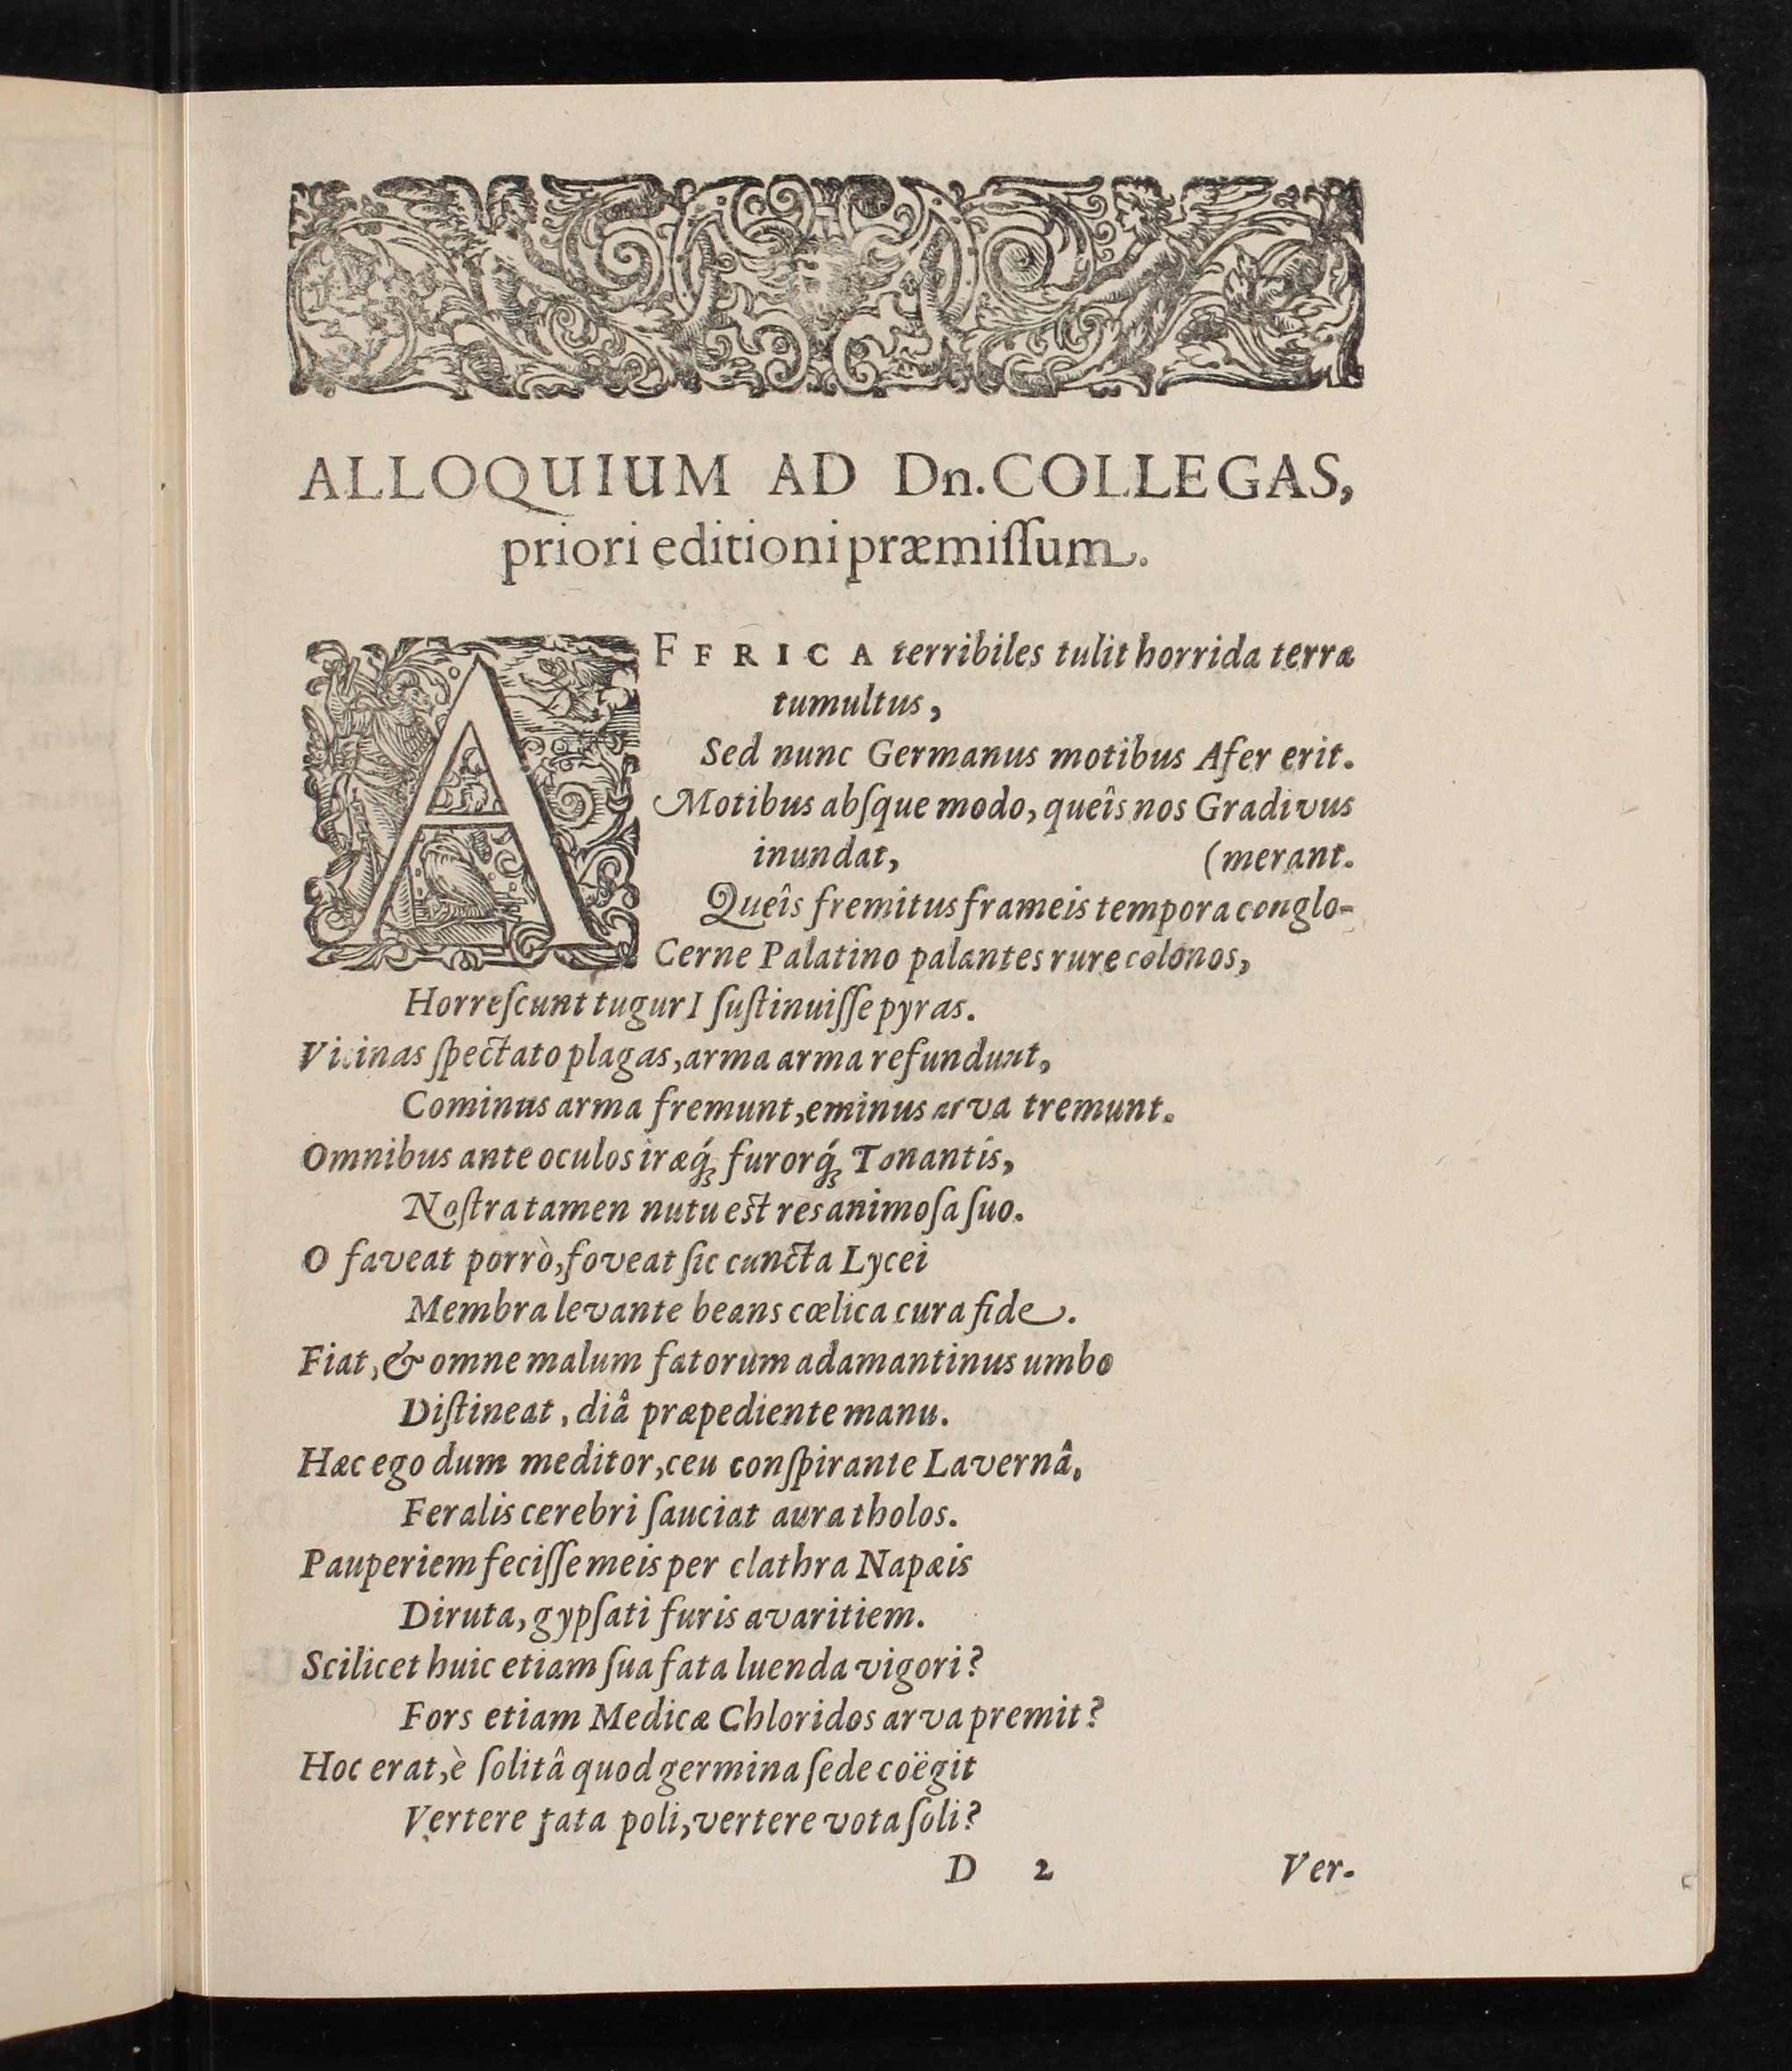 ALLOQUIUM AD Dn. COLLEGAS,
priori editioni præmiſſum.
AFFRICA terribiles tulit horrida terræ
tumultus,
Sed nunc Germanus motibus Afer erit.
Motibus abſque modo, queîs nos Gradivus
inundat, (merant.
Queîs fremitus frameis tempora conglo-
Cerne Palatino palantes rure colonos,
Horreſcunt tugurI ſuſtinuiſſe pyras.
Vicinas ſpectato plagas, arma arma refundunt,
Cominus arma fremunt, eminus arva tremunt.
Omnibus ante oculos iræq́ꝫ furorq́ꝫ Tonantis,
Noſtra tamen nutu est res animoſa ſuo.
O faveat porrò, foveat ſic cuncta Lycei
Membra levante beans cœlica cura fide.
Fiat, & omne malum fatorum adamantinus umbo
Diſtineat, diâ præpediente manu.
Hæc ego dum meditor, ceu conſpirante Lavernâ,
Feralis cerebri ſauciat aura tholos.
Pauperiem feciſſe meis per clathra Napæis
Diruta, gypſati furis avaritiem.
Scilicet huic etiam ſua fata luenda vigori?
Fors etiam Medicæ Chloridos arva premit?
Hoc erat, è ſolitâ quod germina ſede coëgit
Vertere fata poli, vertere vota ſoli?
D 2 Ver-